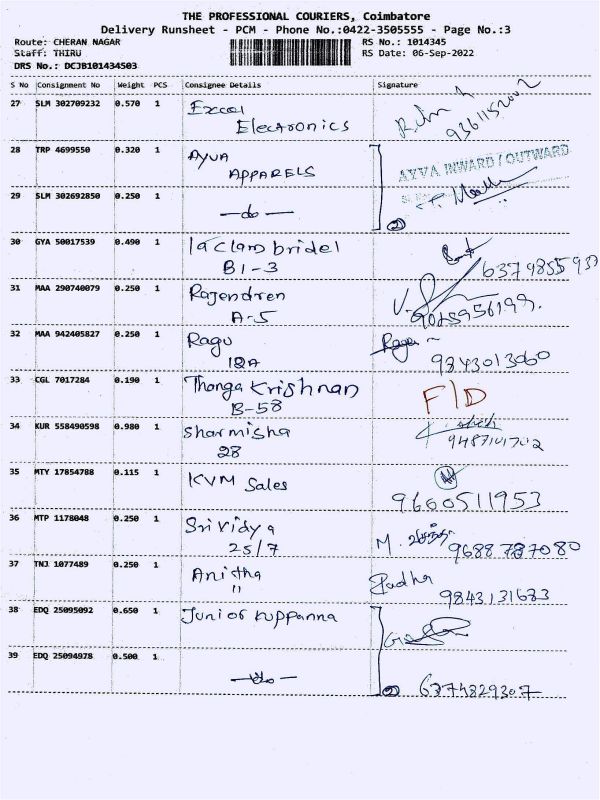 THE PROFESSIONAL COURIERS, Coimbatore
Delivery Runsheet - PCM - Phone No.:0422-3505555 - Page No.:3
Route: CHERAN NAGAR RS No.: 1014345
Staff: THIRU RS Date: 06-Sep-2022
DRS No.: DCJB101434503
S No Consignment No Weight PCS Consignee Details Signature
27 SLM 302709232 0.570 1 Excel
Electronics 9361152002
28 TRP 4699550 0.320 1 Ayva
APPARELS AYVA INWARD / OUTWARD
29 SLM 302692850 0.250 1 —do— 2
30 GYA 50017539 0.490 1 laclambridel
B1-3 6379855937
31 MAA 290740079 0.250 1 Rajendren
A-5 9045956199.
32 MAA 942405827 0.250 1 Ragu Ragu
18A 9843013060
33 CGL 7017284 0.190 1 Thanga Krishnan
B-58 F/D
34 KUR 558490598 0.980 1 sharmisha
28 9487101702
35 MTY 17854788 0.115 1 KVM Sales
9600511953
36 MTP 1178048 0.250 1 Srividya
25/7 9688787080
37 TNJ 1077489 0.250 1 Anitha Radha
" 9843131683
38 EDQ 25095092 0.650 1 Junior kuppanna
39 EDQ 25094978 0.500 1 —do— 2 6374829307